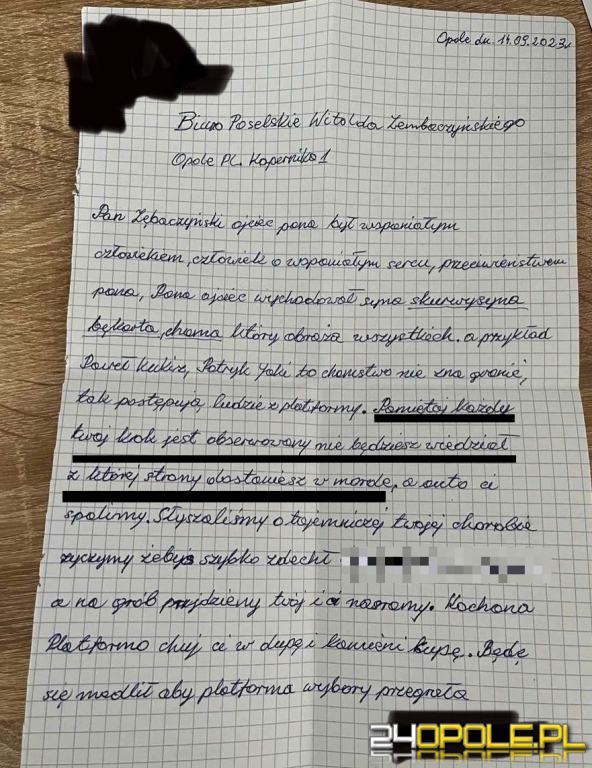 Opole dn. 14.09.2023r
Biuro Poselskie Witolda Zembaczyńskiego
Opole PL. Kopernika 1
Pan Zębaczyński ojciec pana był wspaniałym
człowiekiem, człowiek o wspaniałym sercu, przeciwieństwem
pana, Pana ojciec wychodował syna skurwysyna
bękarta, chama który obraża wszystkich. a przykład
Paweł Kukiz, Patryk Jaki to chamstwo nie zna granic,
tak postępują ludzie z platformy. Pamiętaj każdy
twój krok jest obserwowany nie będziesz wiedział
z której strony dostaniesz w mordę, a auto ci
spalimy. Słyszeliśmy o tajemniczej twojej chorobie
życzymy żebyś szybko zdechł
a na grób przyjdziemy twój i ci nasramy. Kochana
Platformo chuj ci w dupę i kamieni kupę. Będę
się modlił aby platforma wybory przegrała
24OPOLE.PL